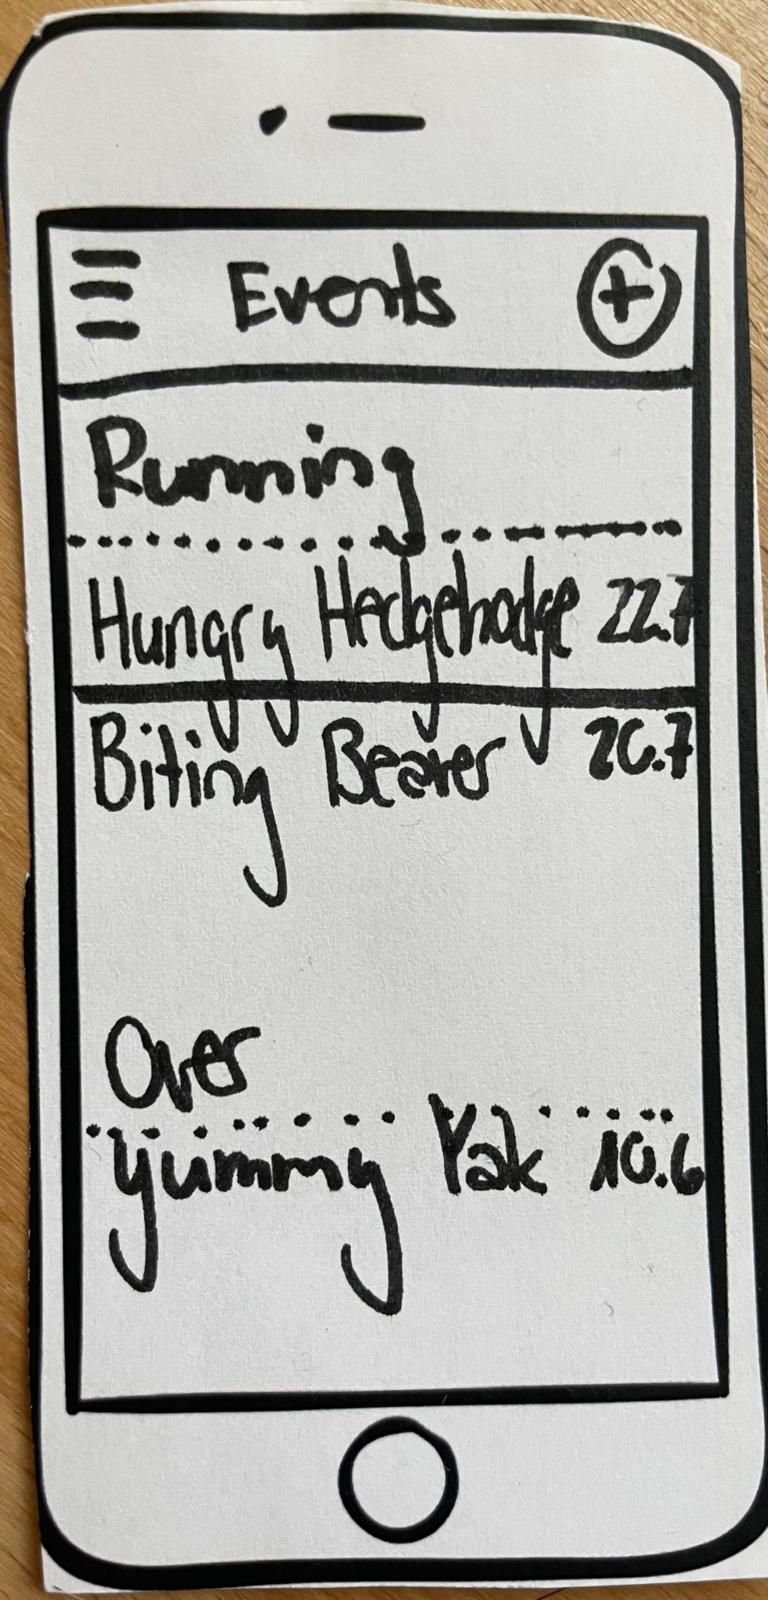 Events +
Running
Hungry Hedgehodge 22.7
Biting Beaver 20.7
Over
Yummy Yak 10.6